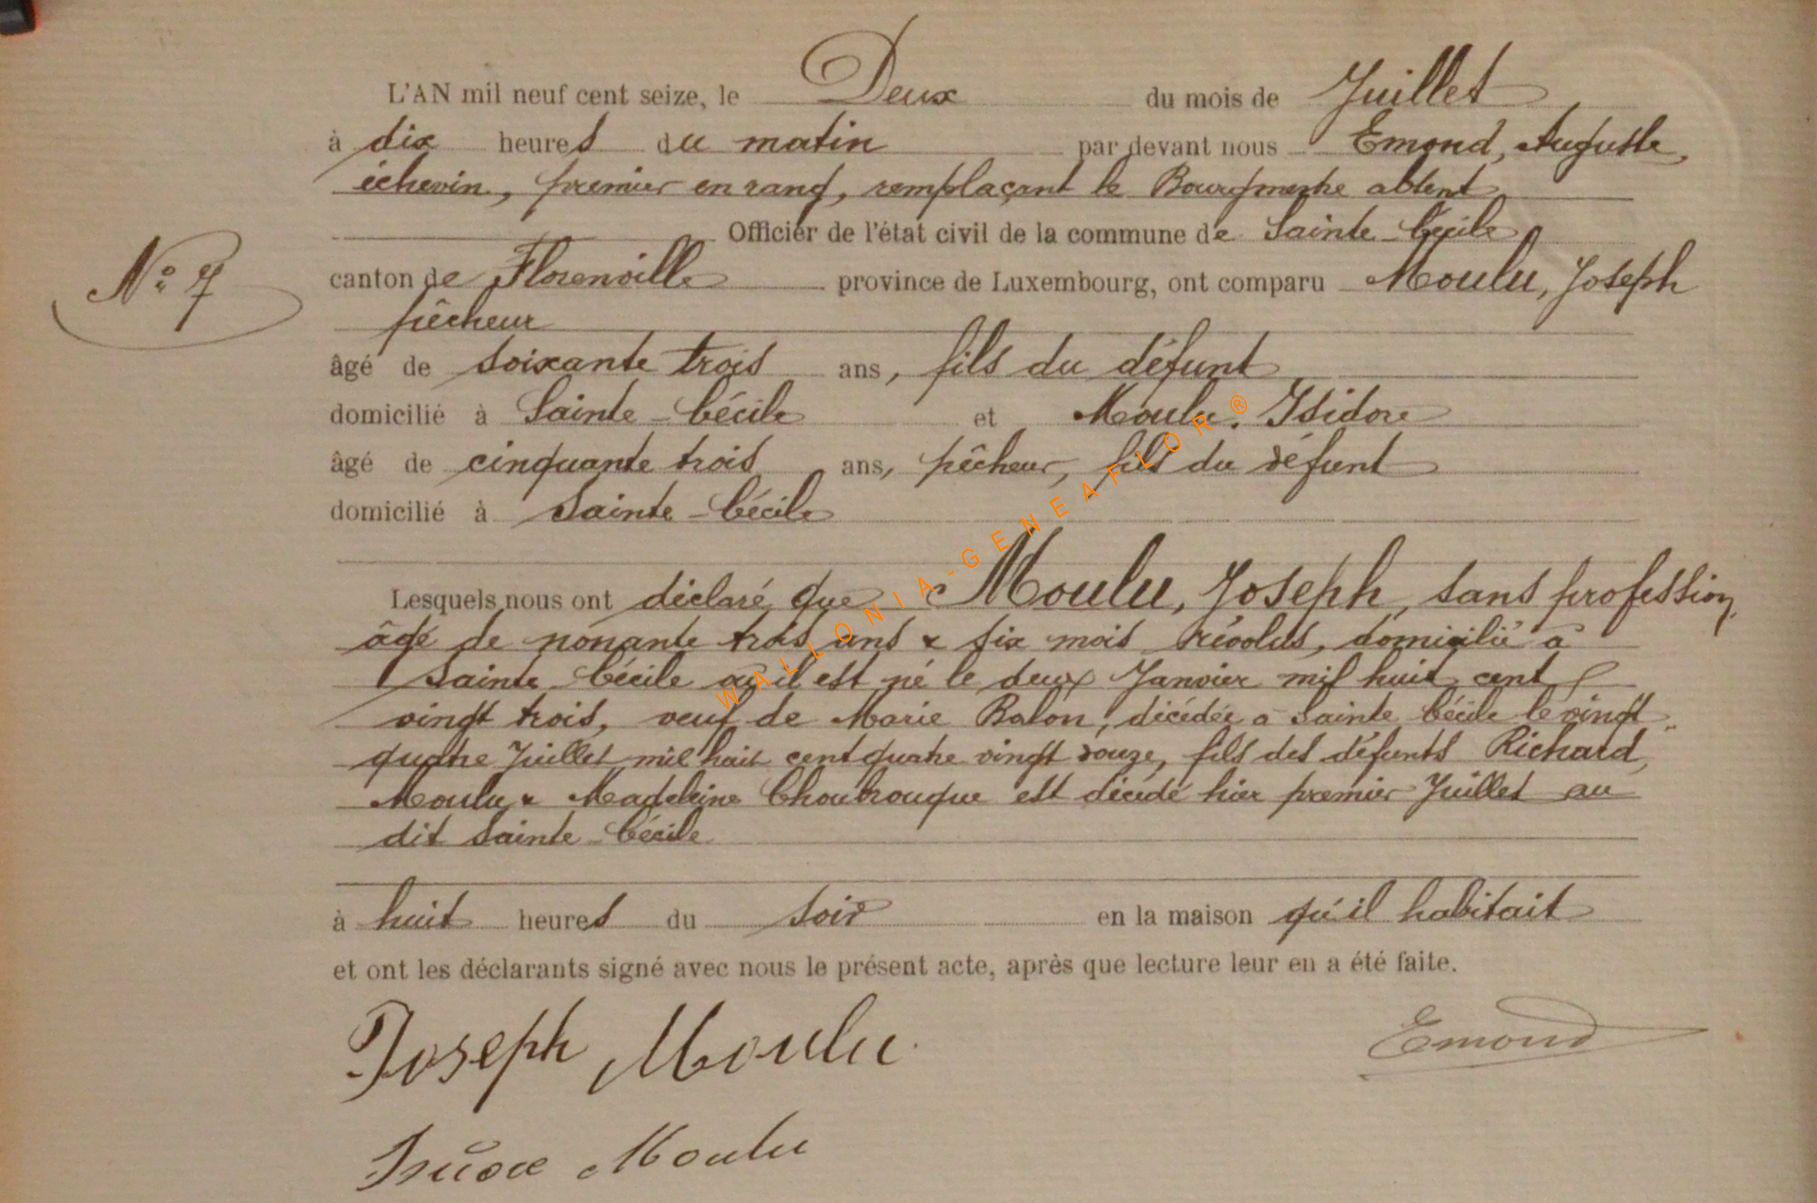 L'AN mil neuf cent seize, le Deux du mois de Juillet
à dix heures du matin par devant nous Emond, Auguste,
échevin, premier en rang, remplaçant le Bourgmestre absent
Officier de l'état civil de la commune de Sainte-Cécile
N° 7
canton de Florenville province de Luxembourg, ont comparu Moulu, Joseph
pêcheur
âgé de soixante trois ans, fils du défunt
domicilié à Sainte-Cécile et Moulu. Isidore
âgé de cinquante trois ans, pêcheur, fils du défunt
domicilié à Sainte-Cécile
Lesquels nous ont déclaré que Moulu, Joseph, sans profession,
âgé de nonante trois ans & six mois révolus, domicilié à
Sainte Cécile où il est né le deux Janvier mil huit cent
vingt trois, veuf de Marie Balon, décédée à Sainte Cécile le vingt
quatre Juillet mil huit cent quatre vingt douze, fils des défunts Richard,
Moulu & Madeleine Choubrouque est décédé hier premier Juillet au
dit Sainte-Cécile
à huit heures du soir en la maison qu'il habitait
et ont les déclarants signé avec nous le présent acte, après que lecture leur en a été faite.
Joseph Moulu
Emond
Moulu
WALLONIA-GENEAFLOR®